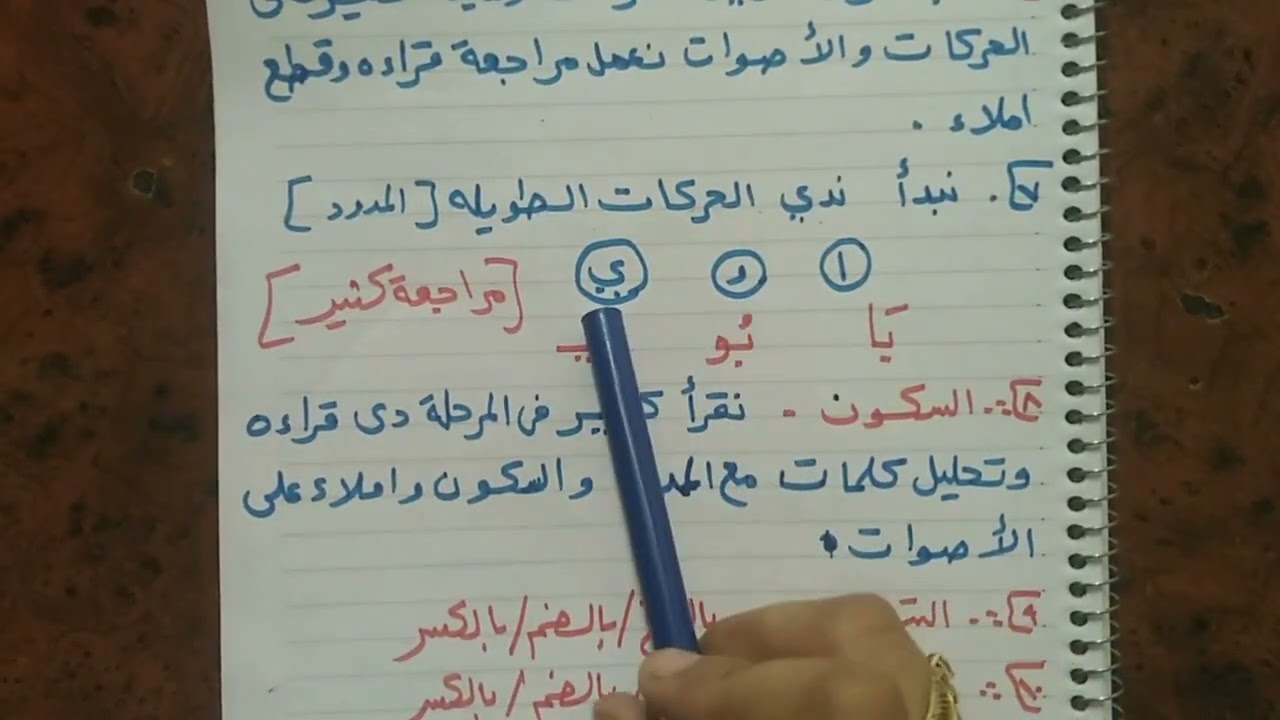 الحركات والأصوات نعمل مراجعة قراءه وقطع
املاء .
٧. نبدأ ندي الحركات الطويله [المدود]
ا و ي [مراجعة كتير]
بَا بُو
٨. السكون . نقرأ في المرحلة دى قراءه
وتحليل كلمات مع والسكون واملاء على
الأصوات .
٩. / بالضم / بالكسر
بالضم / بالكسر